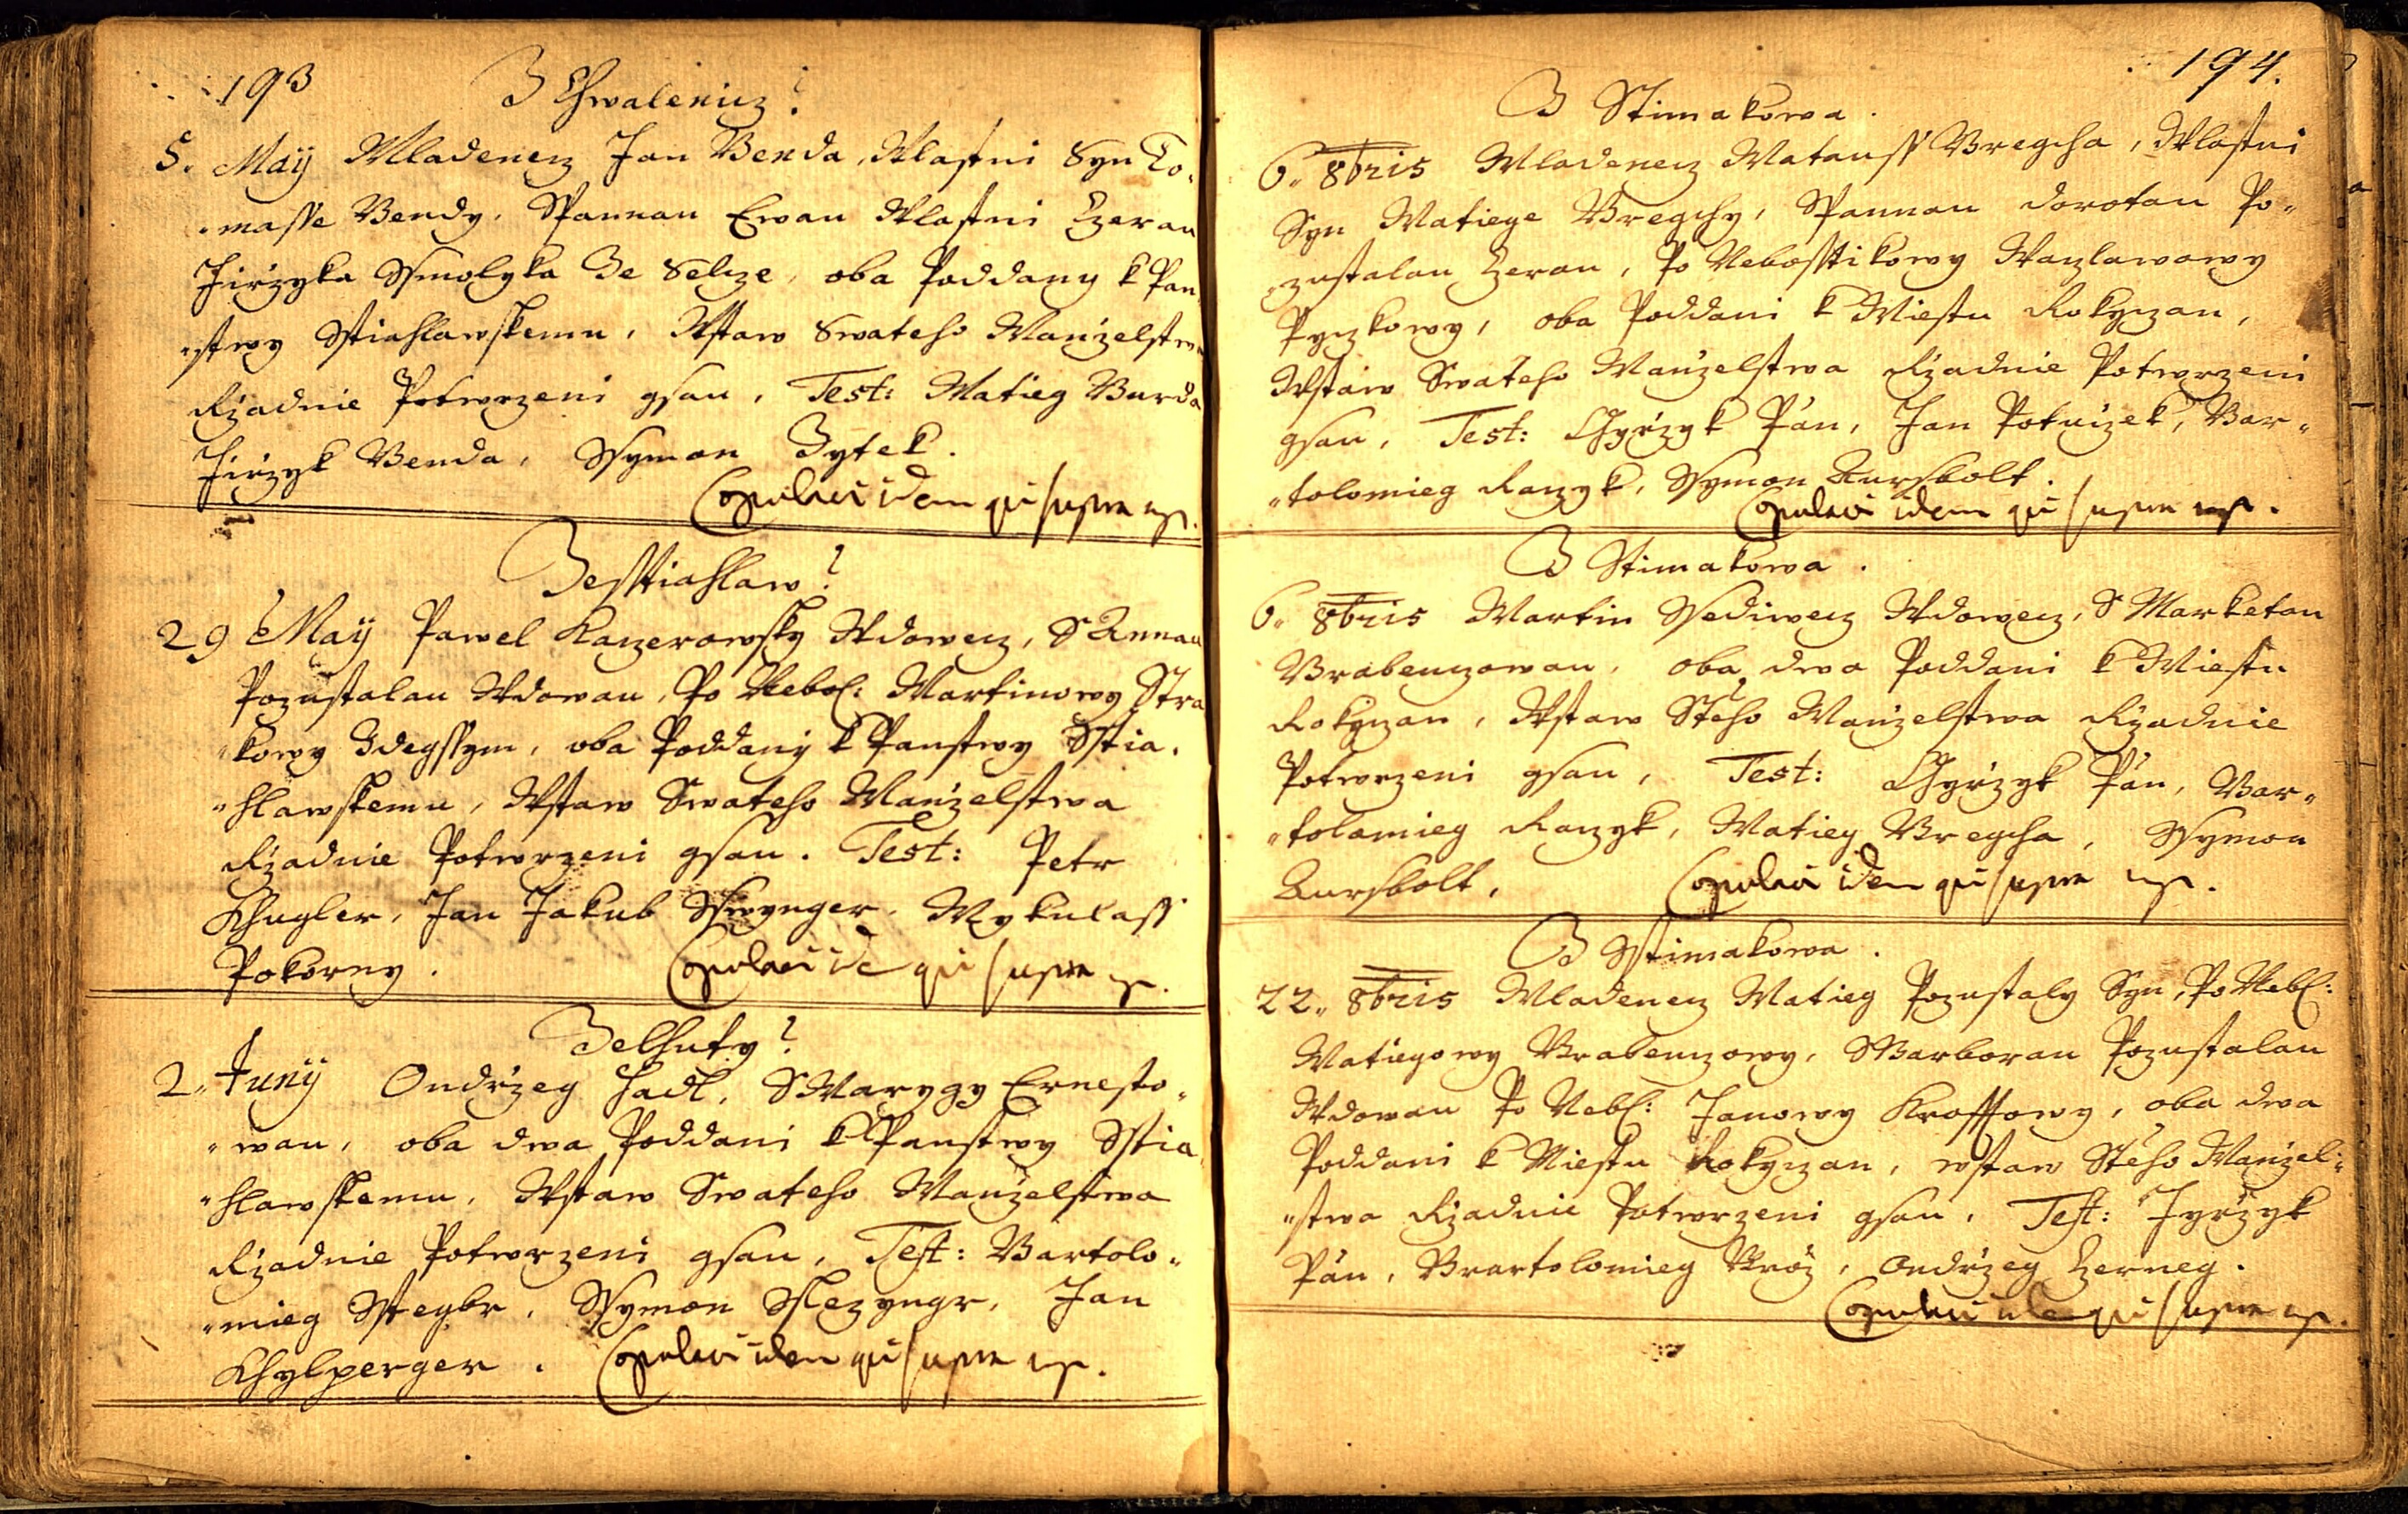 193
Z Chwalenicz
5. Maÿ Mladenecz Jan Benda, Wlastni Syn To„
„masse Bendy, SPannau Ewau Wlastni Czerau
Jirzyka Ssmolyka Ze Selcze, oba Poddany k Pan„
„stwy Sstiahlawskemu, Wstaw Swateho Manzelstwa
Rzadnie Potwrzeni gsau, Test: Matieg Burda
Jirzyk Benda, Ssymon Zytek.
Copulavi idem qui supra mp.
Zesstiahlaw
29 Maÿ Pawel Kaczerowsky Wdowecz, S Annau
Pozustalau Wdowau, Po Nebos: Martinowy Stra
„kowy Zdegssym, oba Poddanÿ k Panstwy Sstia„
„hlawskemu, Wstaw Swateho Manzelstwa
Rzadnie Potwrzeni gsau. Test: Petr
Khugler, Jan Jakub Sswynger, Mykulass
Pokorny. Copulavi ide qui supra mp.
Zelhuty
2. Junÿ Ondrzeg Hadl, SMarygy Ernesto„
„wau, oba dwa Poddani k Panstwy Sstia
„hlawskemu, Wstaw Swateho Manzelstwa
Rzadnie Potwrzeni gsau, Test: Bartolo„
„mieg Stegbr, Ssymon Sslezyngr, Jan
Khylperger. Copulavi idem qui supra mp.
194.
Z Stimakowa.
6„ 8bris Mladenecz Matauss Bregcha, Wlastni
Syn Matiege Bregchy, SPannau dorotau Po„
„zustalau Czerau, Po Nebosstikowy Waczlawowy
Pyczkowy, oba Poddani k Miestu Rokyczan,
Wstaw Swateho Manzelstwa Rzadnie Potwrzeni
gsau, Test: Gyrzyk Pán, Jan Potuczek, Bar„
„tolomieg Raczyk, Ssymon Aursbolt.
Copulavi idem qui supra mp.
Z Stimakowa.
6„ 8bris Martin Ssediwecz Wdowecz, S Marketau
Brabenczowau, oba dwa Poddani k Miestu
Rokyczan, Wstaw Steho Manzelstwa Rzadnie
Potwrzeni gsau, Test: Gyrzyk Pán, Bar„
„tolamieg Raczyk, Matieg Bregcha, Ssymon
Aursbolt, Copulavi idem qui supra mp.
Z Sstimakowa.
22„ 8bris Mladenecz Matieg Pozustaly Syn, Po Nebs:
Matiegowy Brabenczowy, SBarborau Pozustalau
Wdowau Po Nebs: Janowy Krossowy, oba dwa
Poddani k Miestu Rokyczan, wstaw Steho Manzel„
„stwa Rzadnie Potwrzeni gsau, Test: Jyrzyk
Pán, Brartolomieg Broz, Ondrzeg Czerneg.
Copulavi idem qui supra mp.